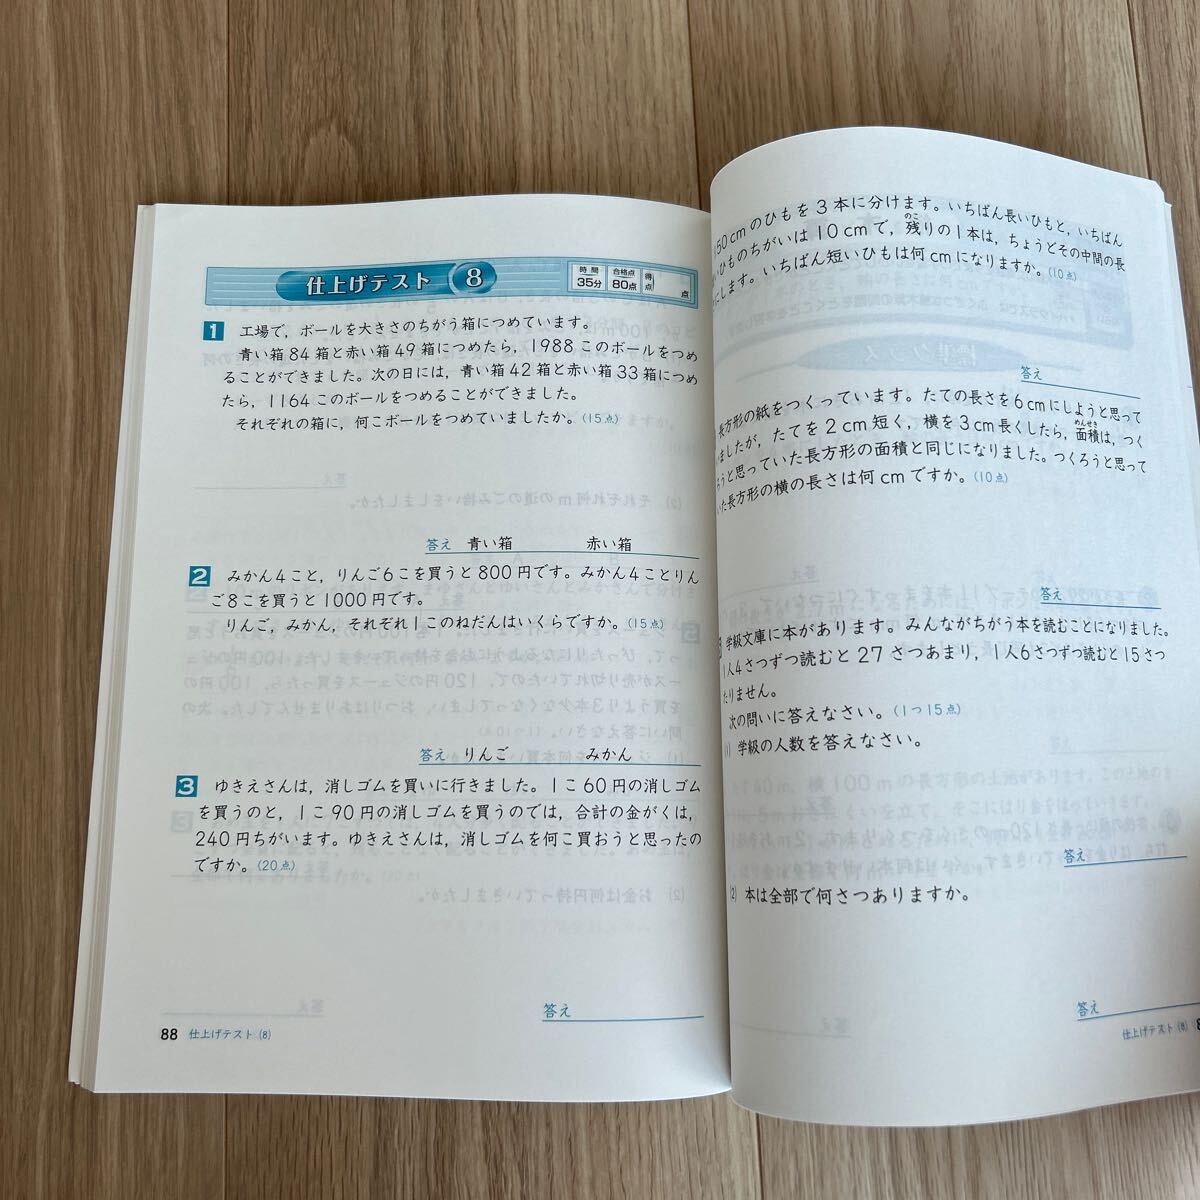 仕上げテスト 8
時間 35分 合格点 80点 得点 点
1 工場で，ボールを大きさのちがう箱につめています。
青い箱84箱と赤い箱49箱につめたら，1988このボールをつめ
ることができました。次の日には，青い箱42箱と赤い箱33箱につめ
たら，1164このボールをつめることができました。
それぞれの箱に，何こボールをつめていましたか。(15点)
答え 青い箱 赤い箱
2 みかん4こと，りんご6こを買うと800円です。みかん4ことりん
ご8こを買うと1000円です。
りんご，みかん，それぞれ1このねだんはいくらですか。(15点)
答え りんご みかん
3 ゆきえさんは，消しゴムを買いに行きました。1こ60円の消しゴム
を買うのと，1こ90円の消しゴムを買うのでは，合計の金がくは，
240円ちがいます。ゆきえさんは，消しゴムを何こ買おうと思ったの
ですか。(20点)
答え
88 仕上げテスト(8)
50cmのひもを3本に分けます。いちばん長いひもと，いちばん
いひものちがいは10cmで，残りの1本は，ちょうどその中間の長
にします。いちばん短いひもは何cmになりますか。(10点)
のこ
答え
長方形の紙をつくっています。たての長さを6cmにしようと思って
いましたが，たてを2cm短く，横を3cm長くしたら，面積は，つく
めんせき
ろうと思っていた長方形の面積と同じになりました。つくろうと思って
いた長方形の横の長さは何cmですか。(10点)
答え
学級文庫に本があります。みんながちがう本を読むことになりました。
1人4さつずつ読むと27さつあまり，1人6さつずつ読むと15さつ
たりません。
次の問いに答えなさい。(1つ15点)
(1) 学級の人数を答えなさい。
答え
(2) 本は全部で何さつありますか。
答え
仕上げテスト(8)